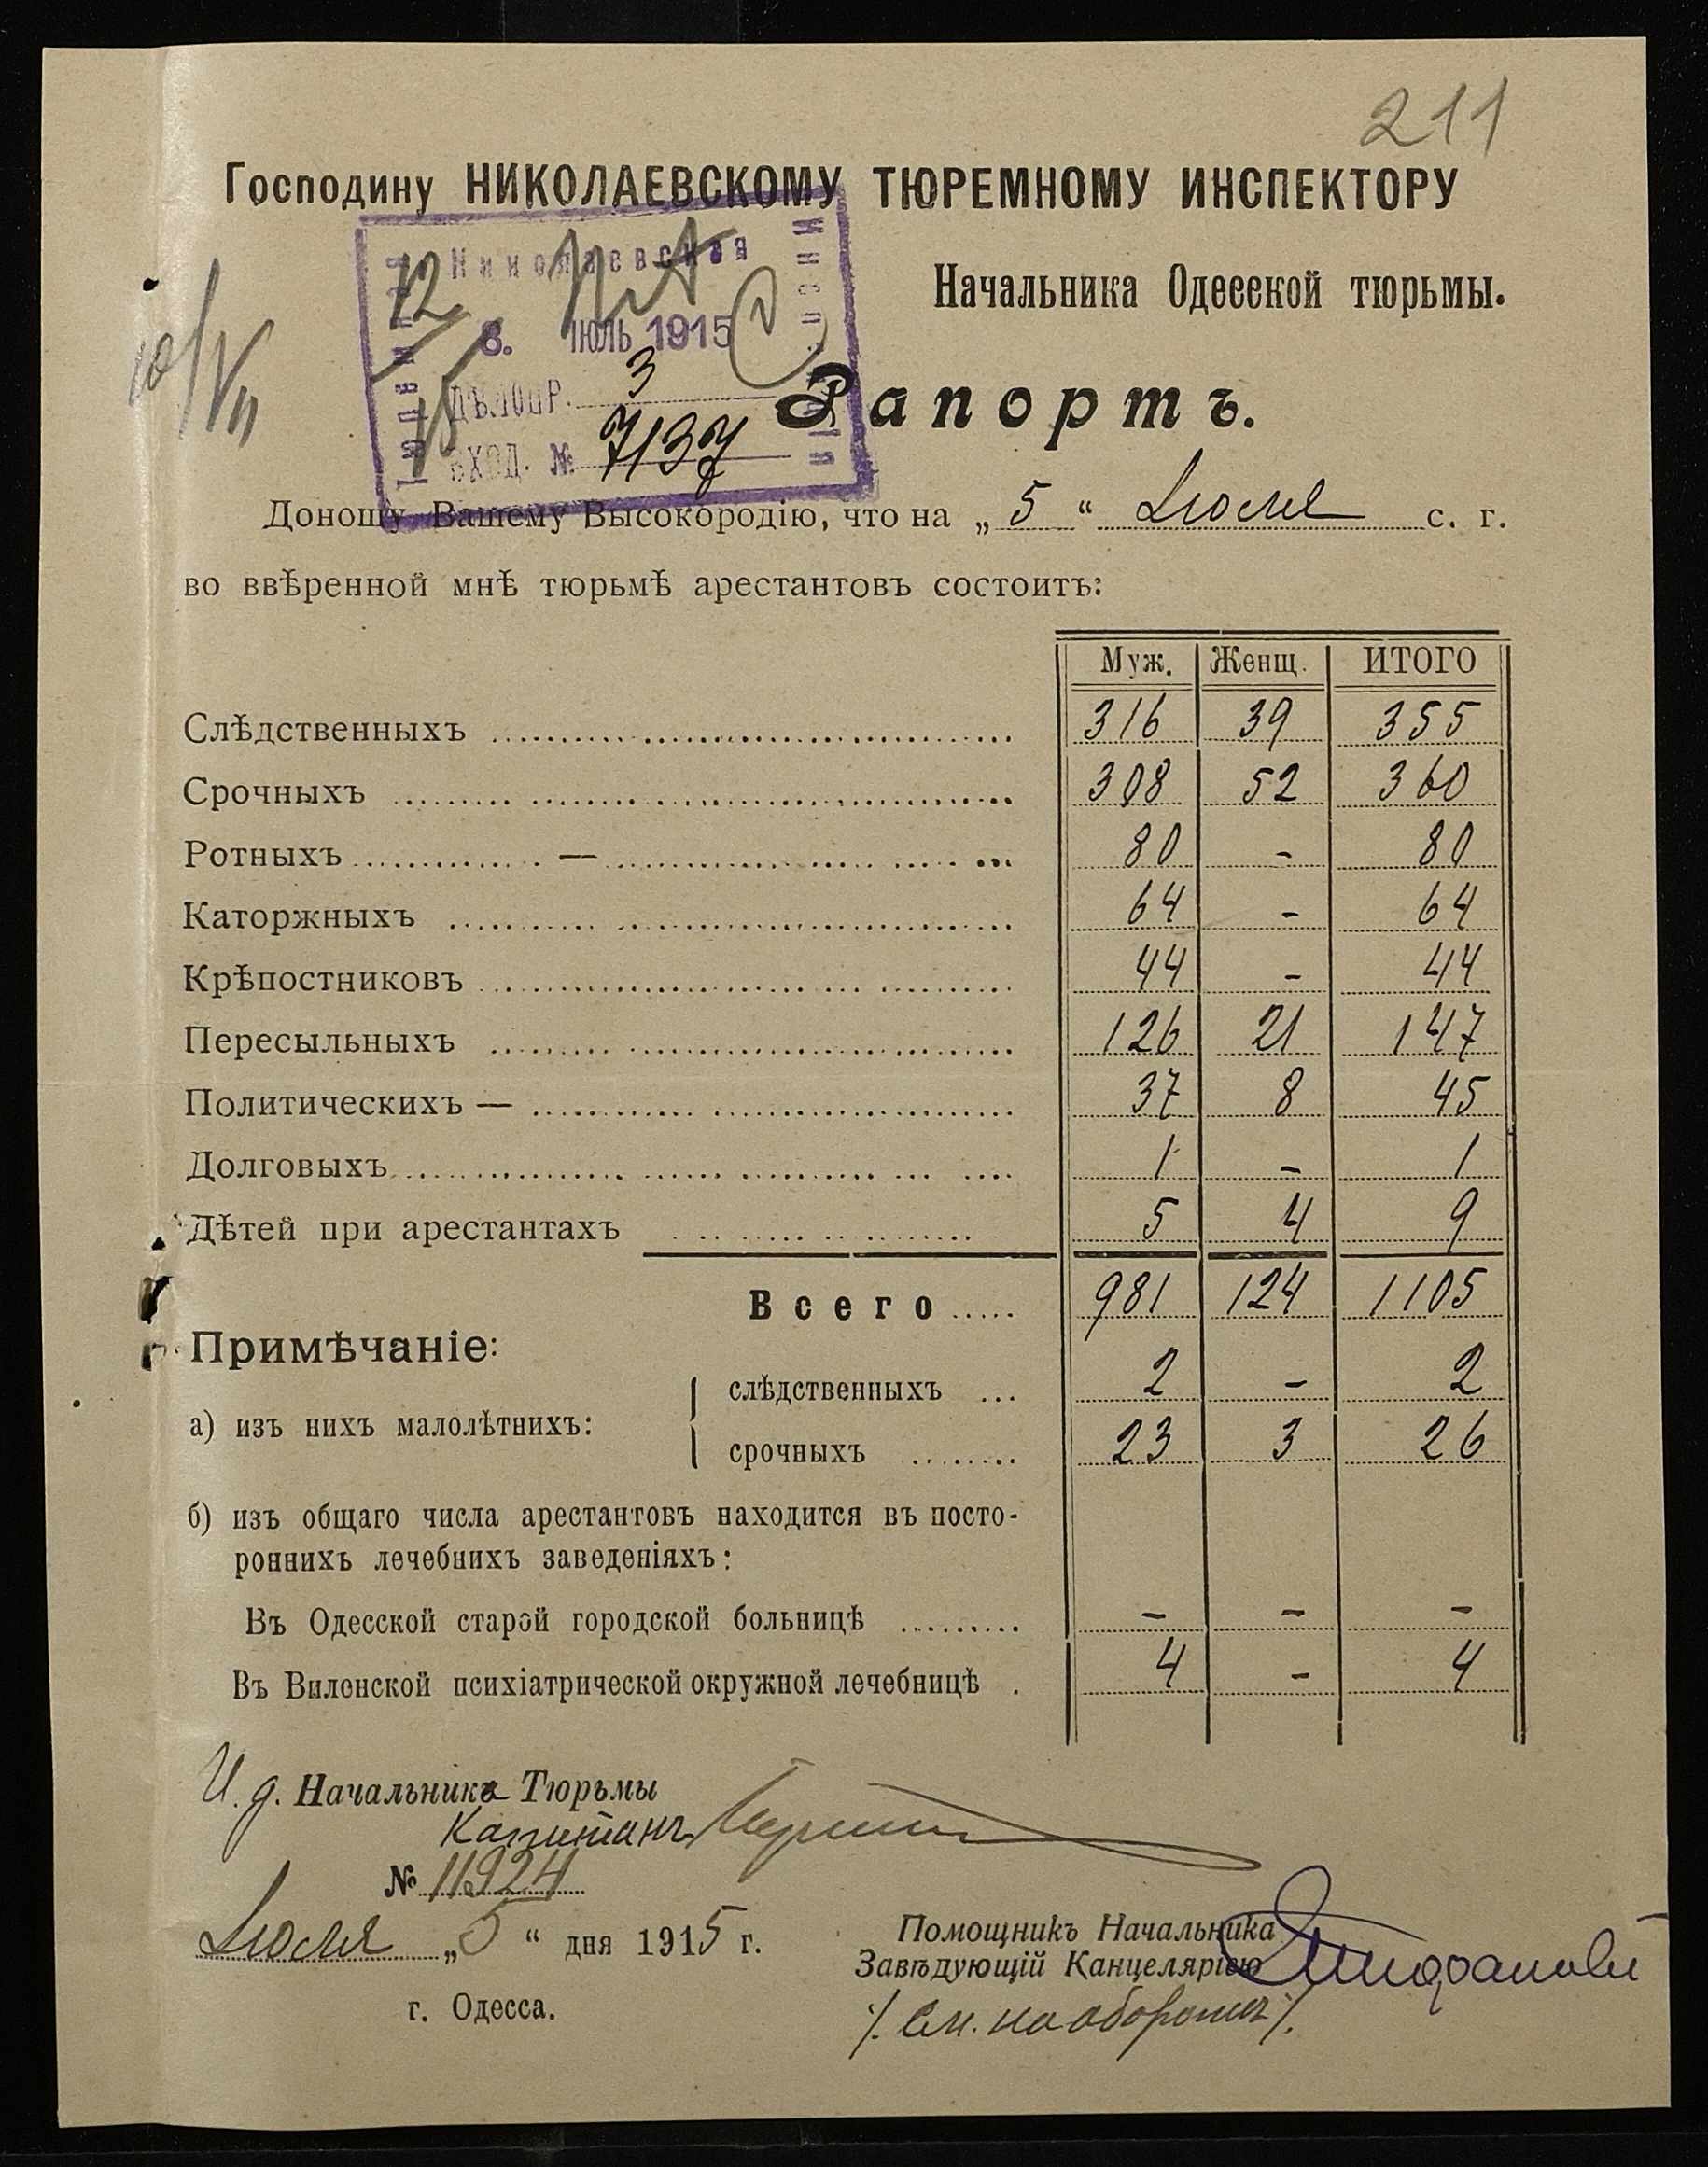 211
Господину НИКОЛАЕВСКОМУ ТЮРЕМНОМУ ИНСПЕКТОРУ
Начальника Одесской тюрьмы.
10/VII
Николаевская
8. ІЮЛЬ 1915
ДѢЛОПР. 3
ВХОД. № 7137
Рапортъ.
Доношу Вашему Высокородію, что на „5“ Іюля с. г.
во ввѣренной мнѣ тюрьмѣ арестантовъ состоитъ:
Муж. Женщ. ИТОГО
Слѣдственныхъ 316 39 355
Срочныхъ 308 52 360
Ротныхъ — 80 - 80
Каторжныхъ 64 - 64
Крѣпостниковъ 44 - 44
Пересыльныхъ 126 21 147
Политическихъ — 37 8 45
Долговыхъ 1 - 1
Дѣтей при арестантахъ 5 4 9
Всего 981 124 1105
Примѣчаніе:
а) изъ нихъ малолѣтнихъ:
слѣдственныхъ 2 - 2
срочныхъ 23 3 26
б) изъ общаго числа арестантовъ находится въ посто-
роннихъ лечебнихъ заведеніяхъ:
Въ Одесской старой городской больницѣ - - -
Въ Виленской психіатрической окружной лечебницѣ 4 - 4
И. д. Начальника Тюрьмы
Капитанъ
№ 11924
Іюля „5“ дня 1915 г.
г. Одесса.
Помощникъ Начальника
Завѣдующій Канцеляріею
/. См. на оборотѣ /.